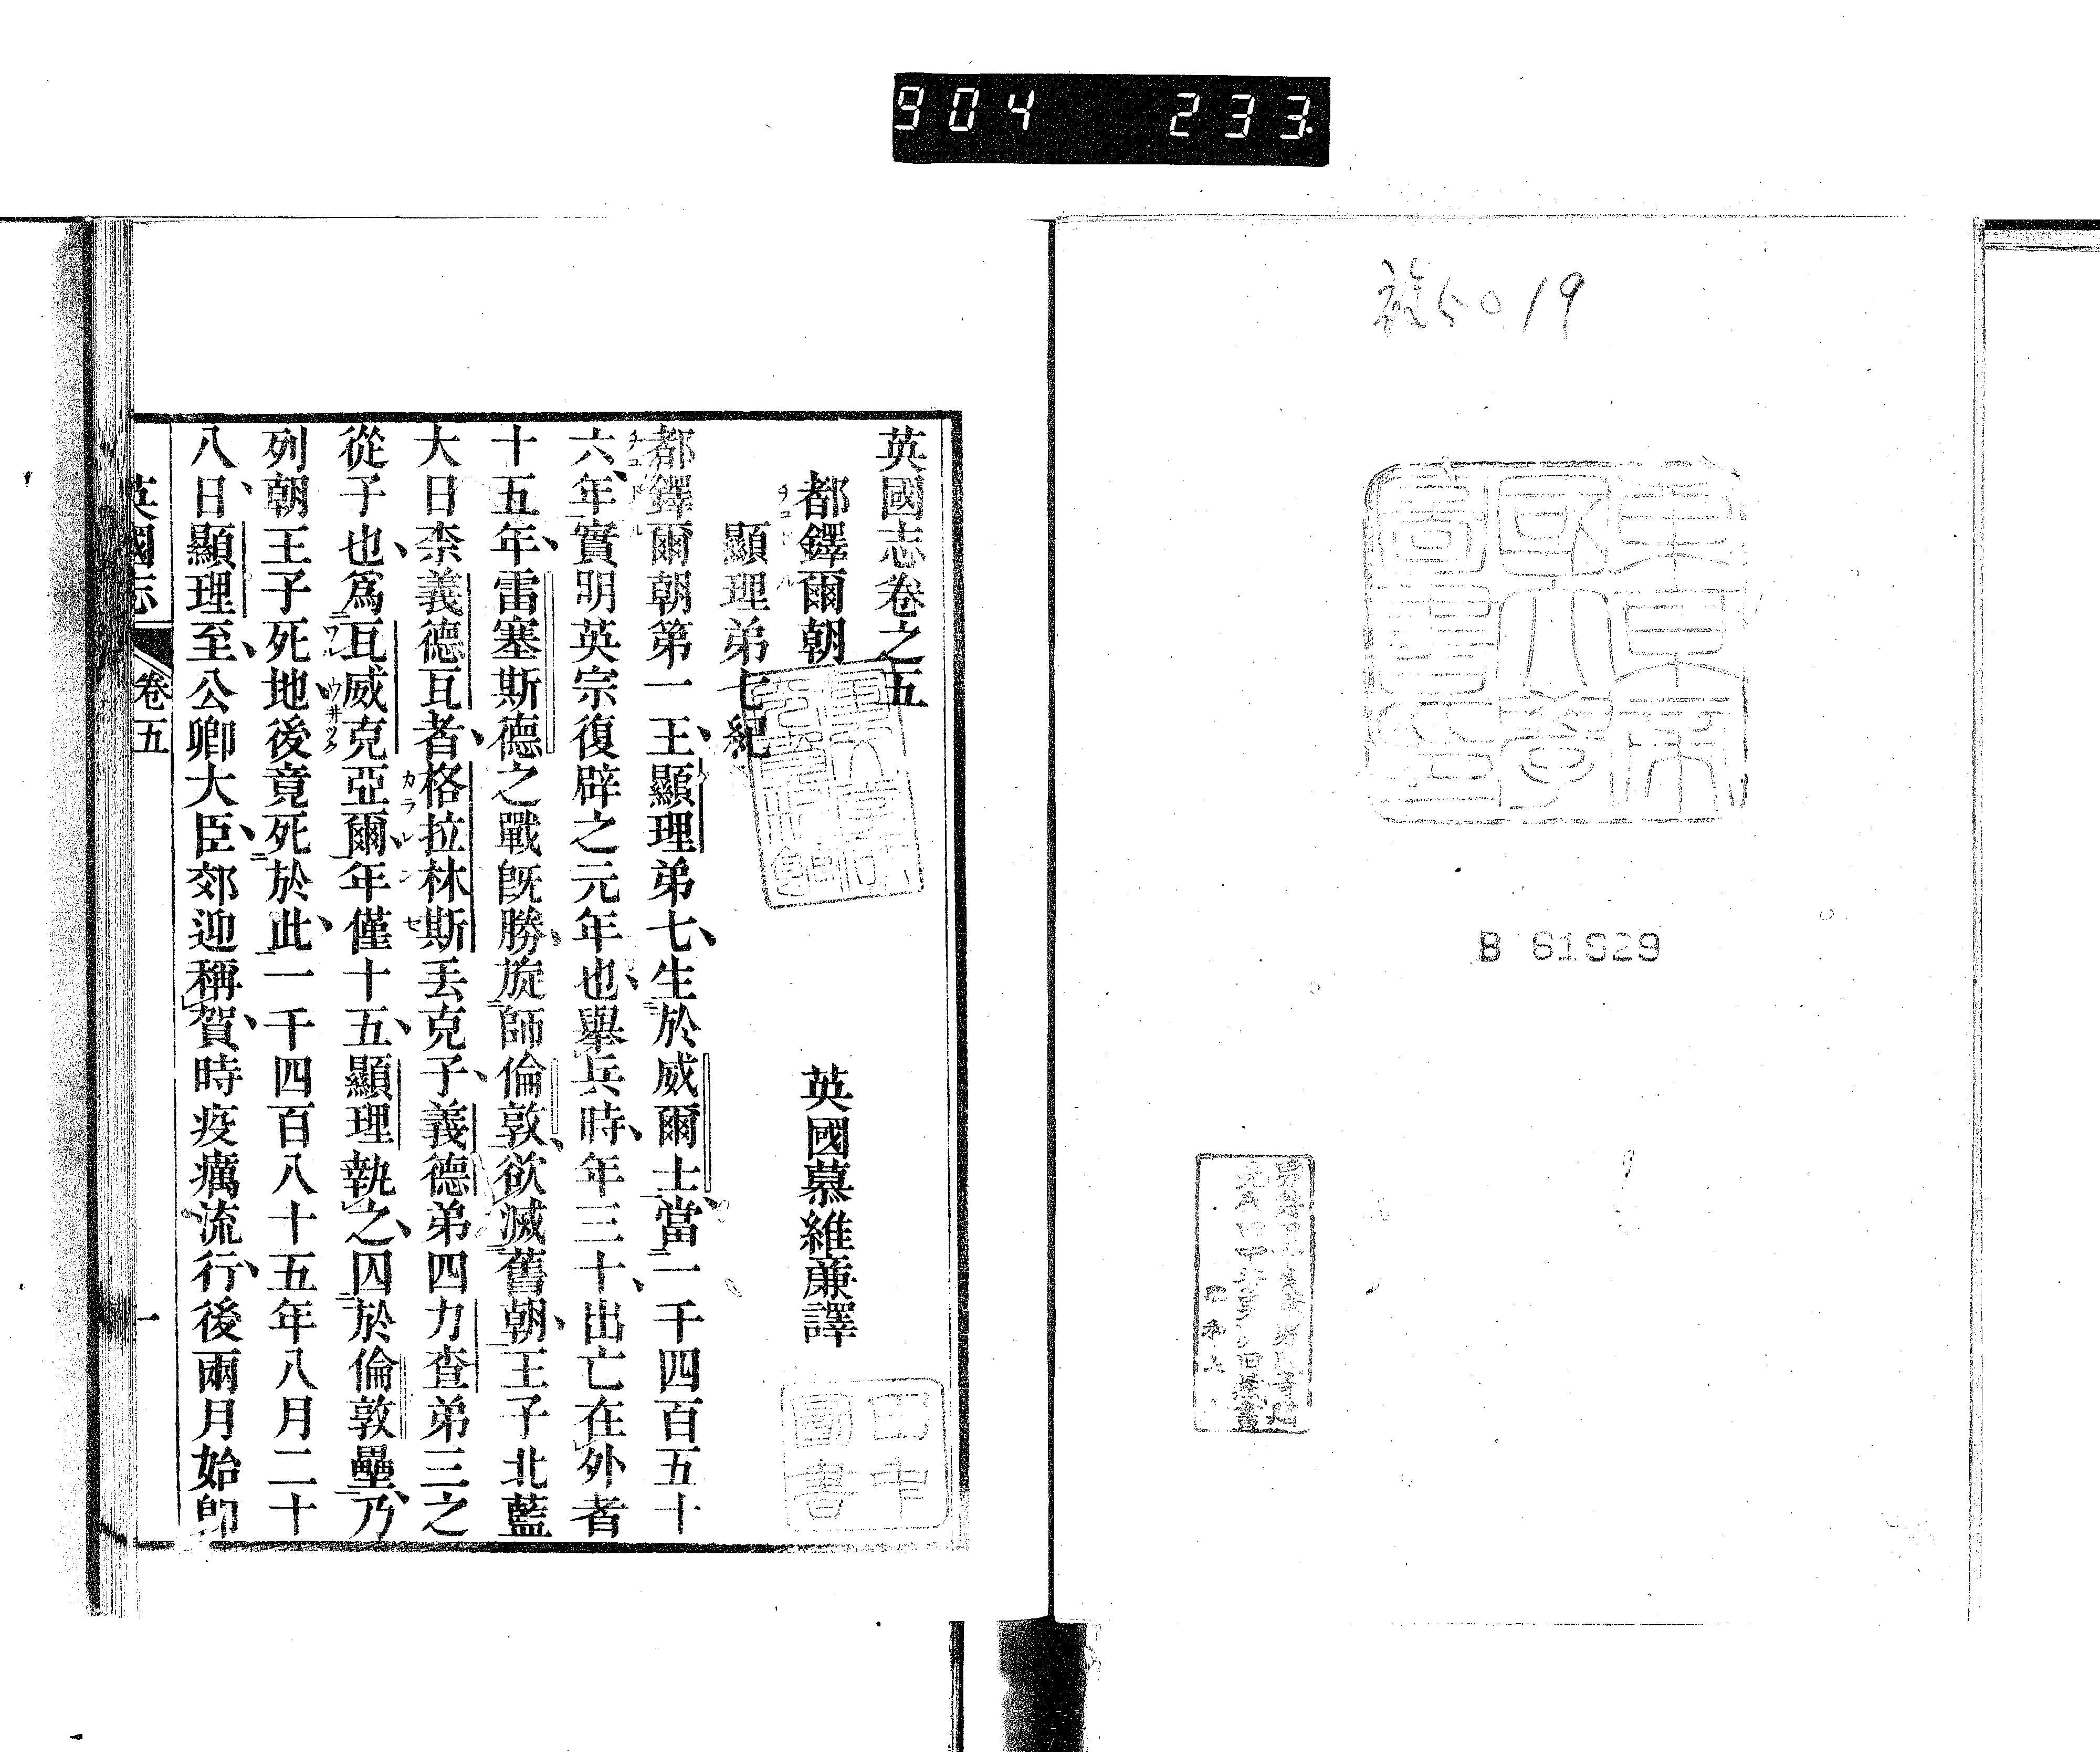 904 233
50.19
東京帝國大學圖書印
B 61929
英國志卷之五
都鐸爾朝
英國慕維廉譯
顯理弟七紀
都鐸爾朝第一王、顯理弟七、生於威爾士、當一千四百五十
六年、實明英宗復辟之元年也、舉兵時、年三十、出亡在外者
十五年、雷塞斯德之戰既勝、旋師倫敦、欲滅舊朝、王子北藍
大日柰義德瓦者、格拉林斯丟克子、義德弟四力查弟三之
從子也、爲瓦威克亞爾、年僅十五、顯理執之、囚於倫敦壘、乃
列朝王子死地、後竟死於此、一千四百八十五年八月二十
八日、顯理至、公卿大臣、郊迎稱賀、時疫癘流行、後兩月始卽
英國志
卷五
一
田中圖書